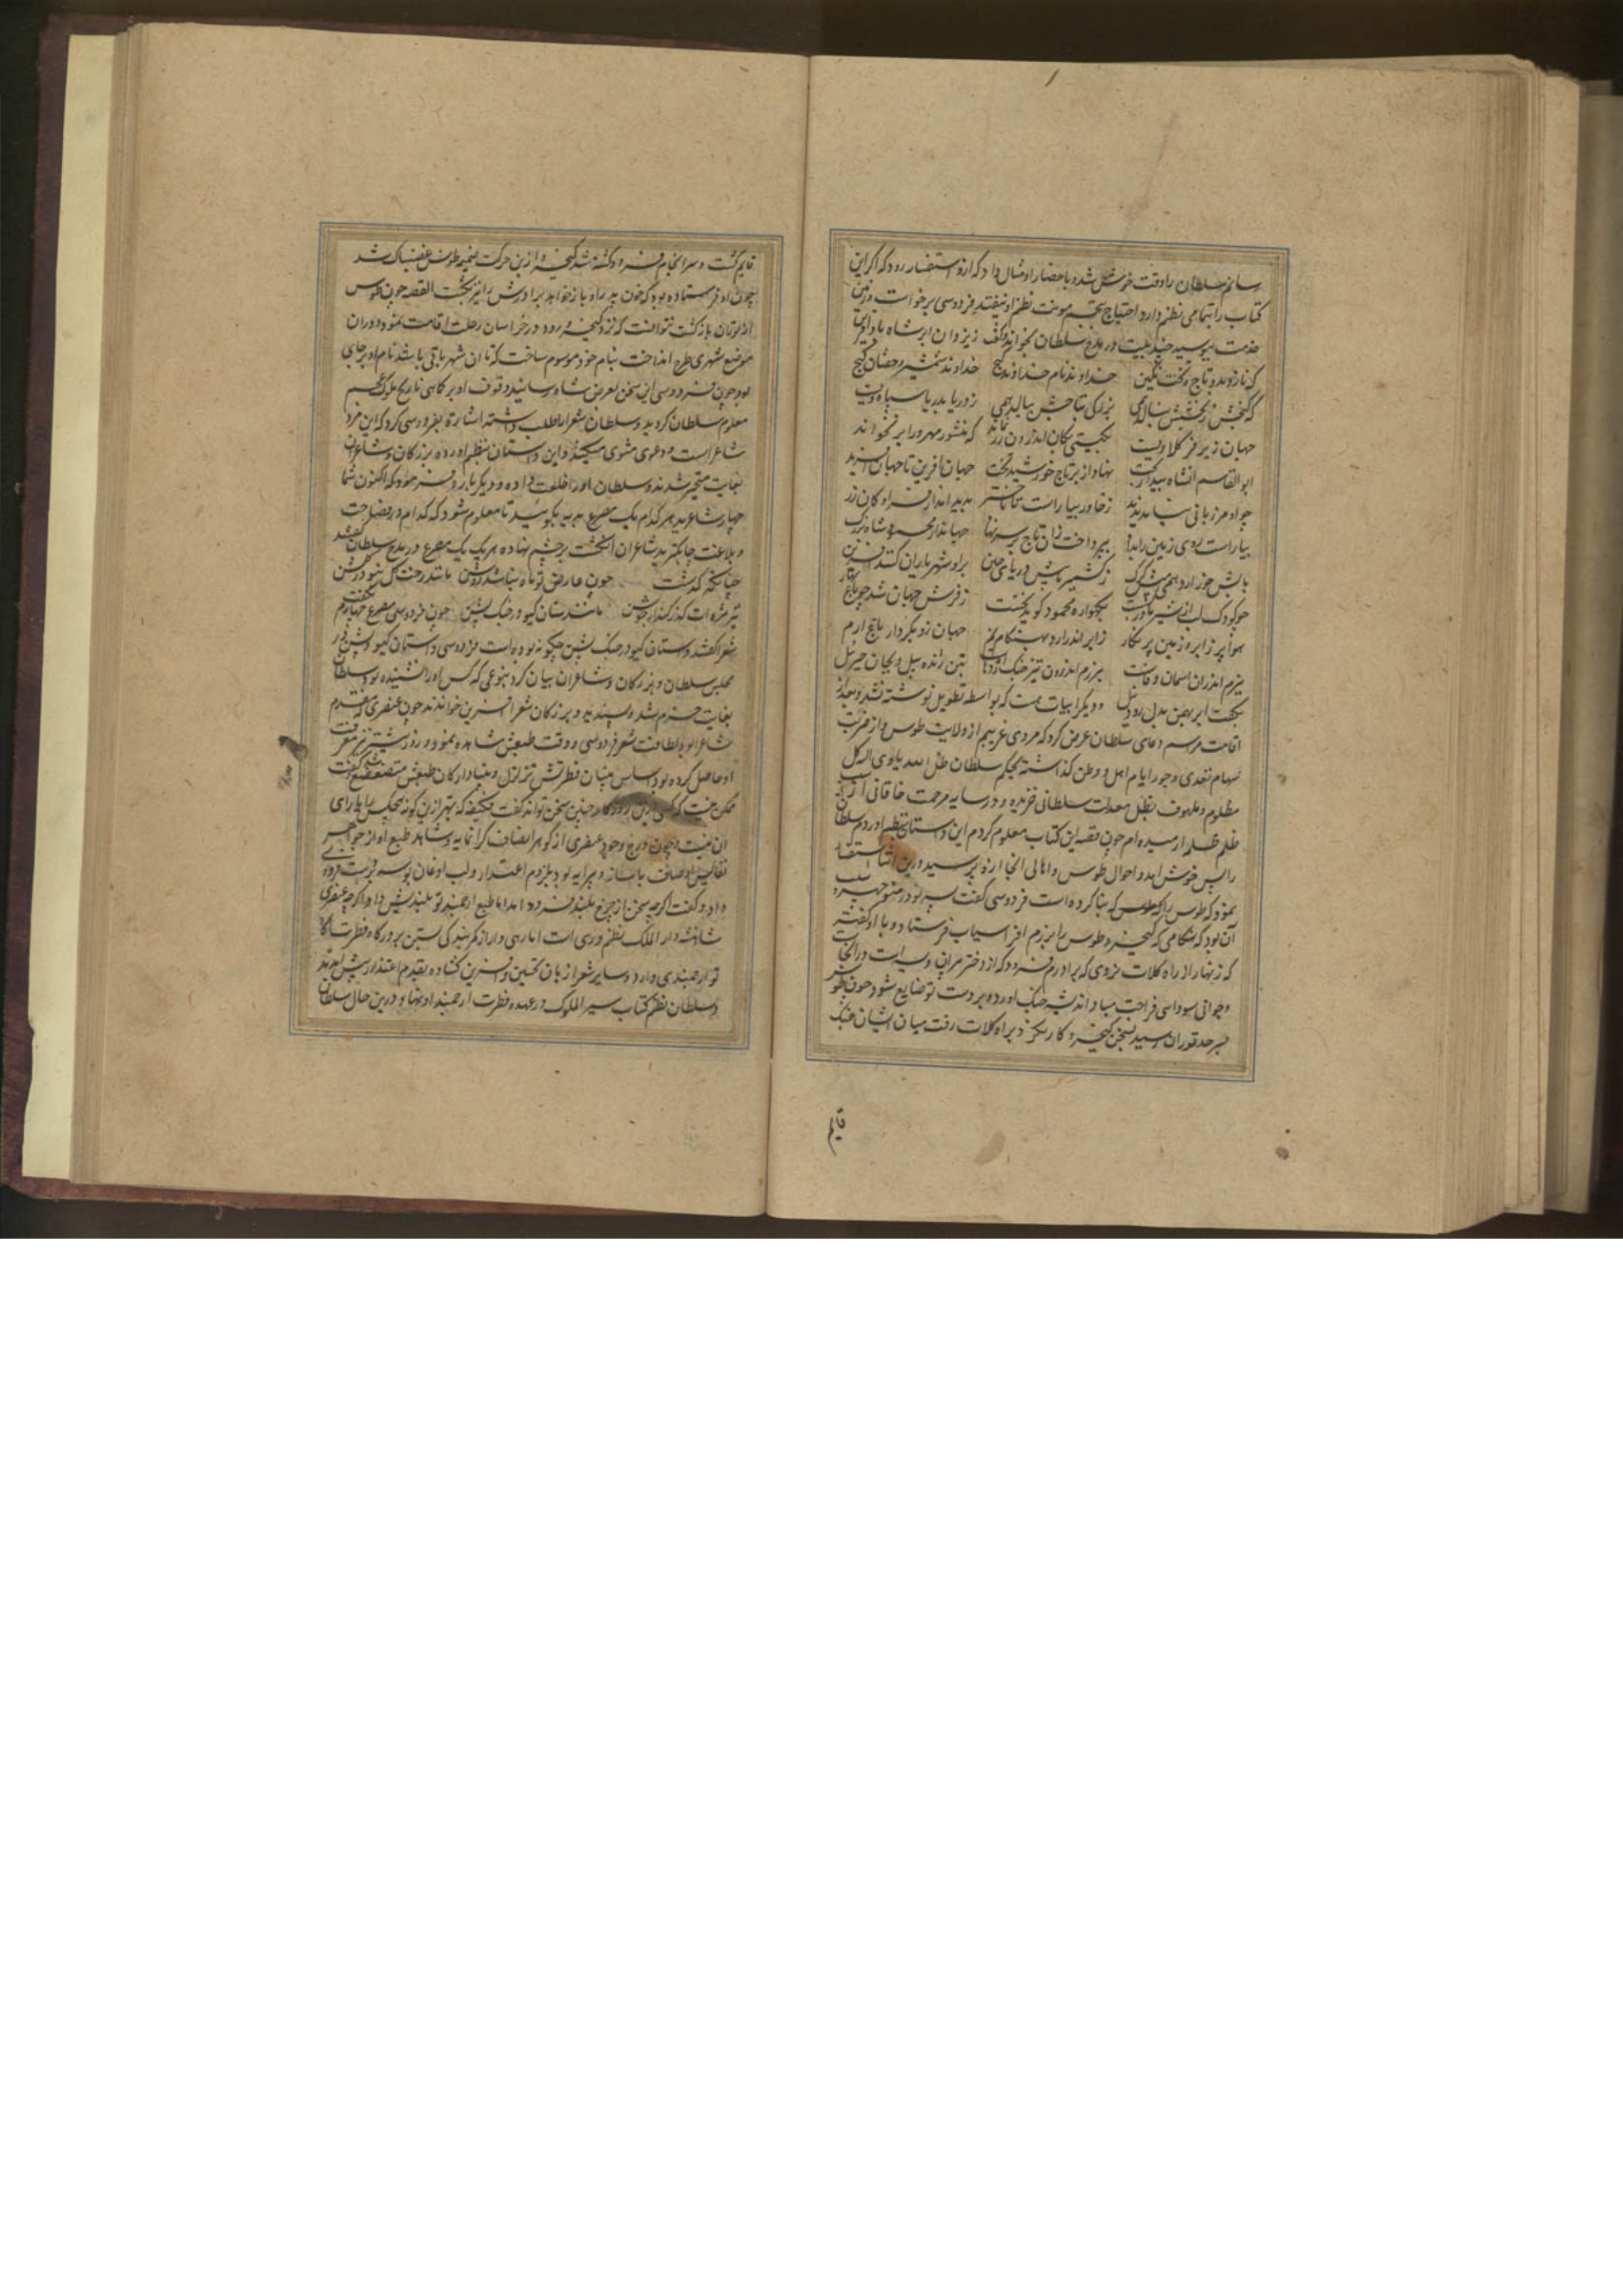 رسانم سلطان را وقت خوش شده باحضار او مثال داد که ازو استفسار رود که اکر این
کتاب را بتمامی نظم دارد احتیاج نظم او نیفتد فردوسی برخواست و زمین
خدمت ببوسید بیت در مدح سلطان بخواند و گفت
که نازد بدو تاج و تخت نگین خداوند نام خداوند گنج خداوند شمشیر و خفتان
که گنجش ز بخشش بنالد همی بزرگی بتاجش ببالد همی ز دریا بدریا سپاه ویست
جهان زیر فر کلاه ویست بگیتی بکان اندرون زر نماند که منشور مهر ورا بر نخواند
ابوالقاسم آن شاه بیداربخت نهاد از بر تاج خورشید تخت جهان آفرین تا جهان آفرید
چو او مرزبانی نیامد پدید ز خاور بیاراست تا باختر پدید آمد از فر او کان زر
بیاراست روی زمین را بداد بپرداخت زان تاج بر سر نهاد جهاندار محمود شاه بزرگ
بآبش خور آرد همی میش و گرگ ز کشمیر تا پیش دریای چین برو شهریاران کنند آفرین
چو کودک لب از شیر مادر بشست بگهواره محمود گوید نخست ز فرش جهان شد چو باغ بهار
هوا پر ز ابر و زمین پر نگار ز ابر اندر آرد بهنگام نم جهان زو بکردار باغ ارم
ببزم اندران اسمان وفاست برزم اندرون تیز چنگ اژدهاست بتن ژنده پیل و بجان جبرئیل
بکف ابر بهمن بدل رود نیل و دیگر ابیات هست که بواسطه تطویل نوشته نشد و بعد از
اقامت مراسم دعای سلطان عرض کرد که مردی غریبم از ولایت طوس و از ضربت
سهام تعدی و جور ایام اهل و وطن گذاشته بحکم سلطان ظل الله یاوی الیه کل
مظلوم و ملهوف بظل معدلت سلطانی خزیده و در سایه مرحمت خاقانی از
ظلم ظلم ارمیده ام چون قصه این کتاب معلوم کردم این داستان بنظم اوردم سلطان
را بس خوش امد و احوال طوس و اهالی انجا ازو پرسید درین اثنا استفسار
نمود که طوس را که بنا کرده است فردوسی گفت
آن بود که هنگامی که کیخسرو طوس را برزم افراسیاب فرستاد و با او گفته
که زنهار از راه کلات نروی که برادرم فرود که از دختر پیران ویسه است در انجاست
و جوانی سودایی مبادا اندیشه جنک اورده بر دست تو ضایع شود چون طوس
بسرحد توران رسید بسخن کیخسرو کار نکرد و براه کلات رفت میان ایشان جنک
قایم
قایم گشت و سرانجام فرود کشته شد کیخسرو ازین حرکت طوس غضبناک شد
چون او فرستاده بود که خون پدر او باز خواهد برادرش را نیز بکشت القصه چون طوس
از توران بازکشت نتوانست که نزد کیخسرو رود در خراسان رحلت اقامت نمود و در ان
موضع شهری طرح انداخت بنام خود موسوم ساخت که تا ان شهر باقی باشد نام او بر جای
بود چون فردوسی این سخن بعرض شاه رسانید وقوف او بر کماهی تاریخ ملوک عجم
معلوم سلطان کردید و سلطان شعرا را طلب داشته اشارت بفردوسی کرد که این مرد
شاعر است و دعوی مثنوی میکند و این داستان بنظم اورده بزرکان و شاعران
بغایت متحیر شدند و سلطان او را خلعت داده و دیکربار فرمود که اکنون شما
چهار شاعرید هر کدام یک مصرع بدیهه بکویید تا معلوم شود که کدام در فصاحت
و بلاغت چابکترید شاعران انگشت بر چشم نهاده هر یک یک مصرع در مدح سلطان گفتند
چنانکه گذشت چون عارض تو ماه نباشد روشن مانند رخت گل نبود در گلشن
تیر مژه ات گذر کند از جوشن مانند سنان گیو در جنگ پشن چون فردوسی مصرع چهارم بگفت
شعرا گفتند داستان گیو در جنگ پشن چگونه بوده است فردوسی داستان گیو و پشن در
مجلس سلطان و بزرکان و شاعران بیان کرد بنوعی که کس او را نشنیده بود سلطان
بغایت خرم شد و پسندید و بزرکان شعرا آفرین خواندند چون عنصری که مقدم
شاعران بود لطافت شعر فردوسی و وقت طبعش مشاهده نمود و روز پیشتر نیز معرفت
او حاصل کرده بود اساس بنیان فطرتش تزلزل و بنیاد ارکان طبعش متضعضع شد گفت
ممکن نیست که کسی درین روزگار چنین سخن تواند گفت فکیف که بهتر ازین گوید هیچکس را یارای
ان نیست و چون درج وجود عنصری از گوهر انصاف گرانمایه و شاهد طبع او از جواهر
نفایس اوصاف با ساز و پیرایه بود بلزوم اعتذار و لب اذعان بوسه بر دست فردوسی
داد و گفت اگرچه سخن از چرخ بلند فرود امد اما طبع ارجمند تو بلندیش داد و اگرچه عنصری
شاهنشه دار الملک نظم وری است اما رهی وار از کمر بندگی بستن بر درگاه فطرت تو
تو ارجمندی دارد و سایر شعرا زبان تحسین و افرین گشاده بقدم اعتذار پیش امدند
و سلطان نظم کتاب سیر الملوک در عهده فطرت ارجمند او نهاد و درین حال سلطان